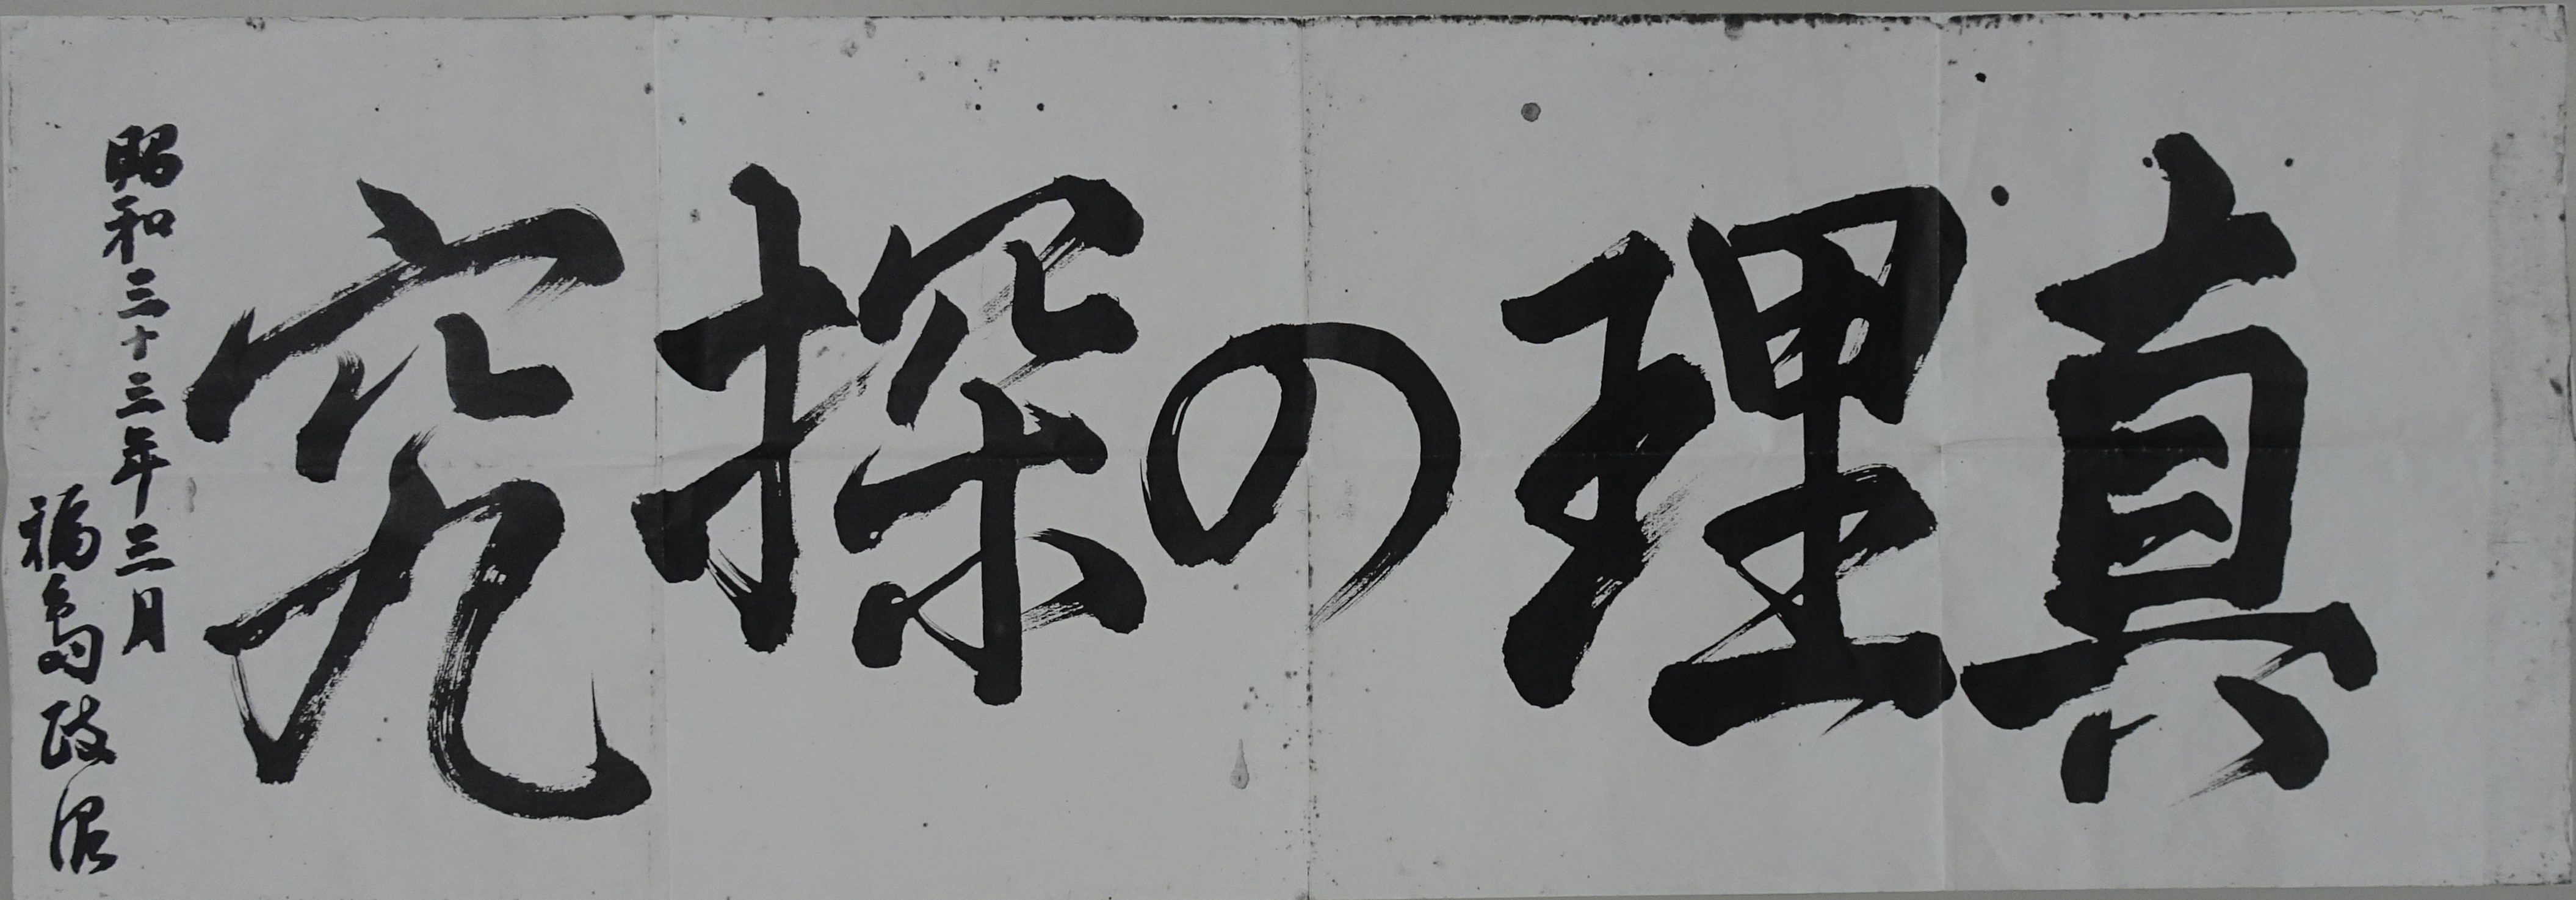 真理の探究
昭和三十三年三月
福島政温